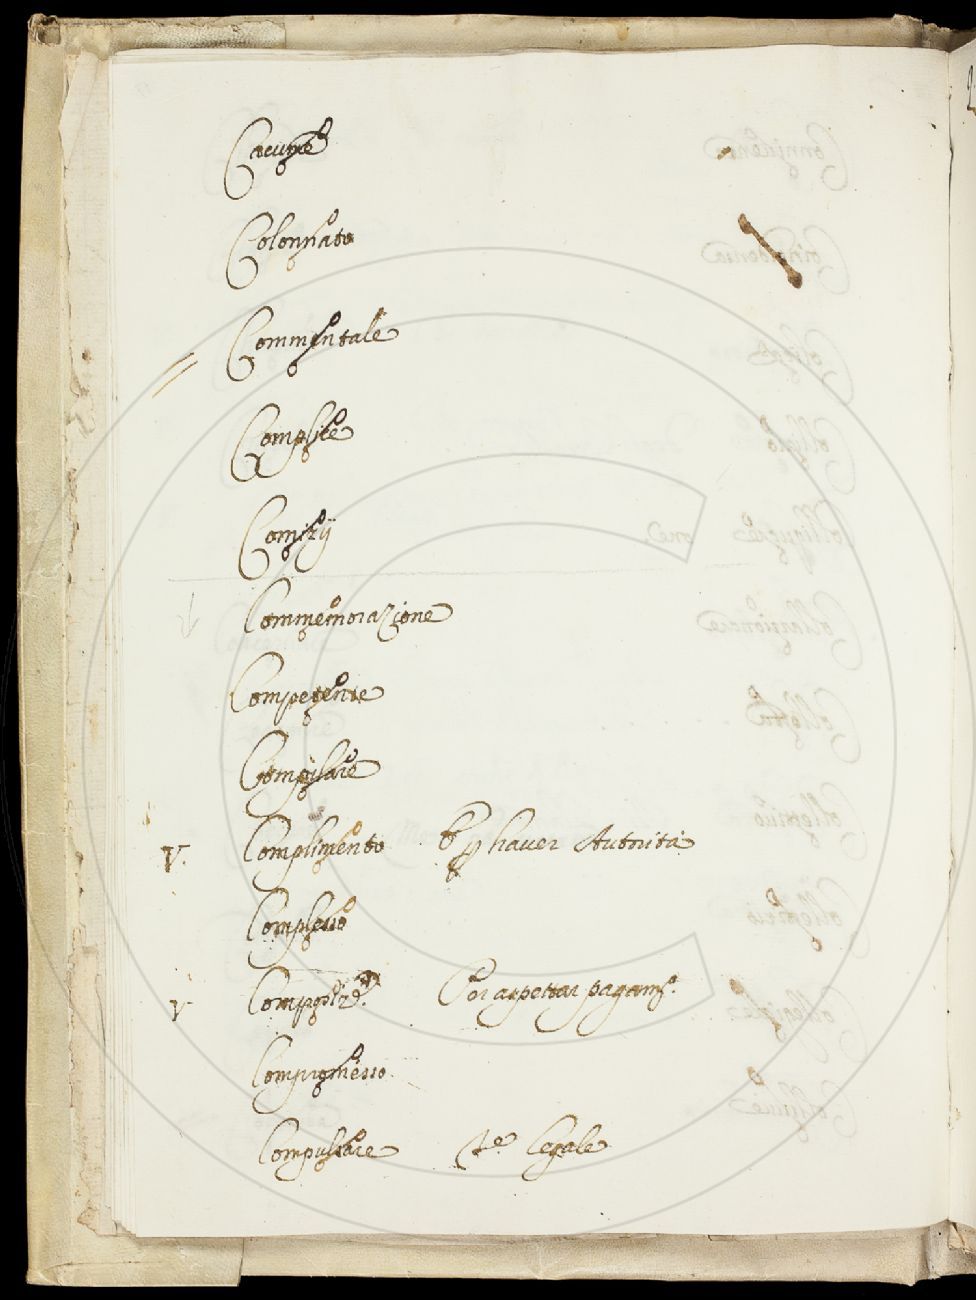 Cacume
Colonnato
Commentale
Complice
Comizÿ
Commemorazione
Competente
Compilare
V. Complimento hauer Autorità
Complesso
V Compor aspettar pagamto.
Compromesso
Compulsare legale